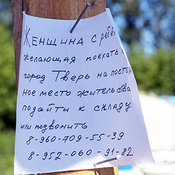 Женщина с ребё
желающая поехать в
город Тверь на постоя
ное место жительства
подайти к складу
или позвонить
8-960-709-55-39
8-952-060-91-82